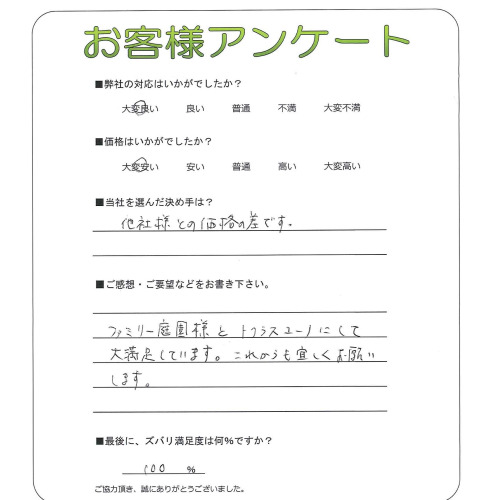 お客様アンケート
■弊社の対応はいかがでしたか？
大変良い 良い 普通 不満 大変不満
■価格はいかがでしたか？
大変安い 安い 普通 高い 大変高い
■当社を選んだ決め手は？
他社様との価格の差です。
■ご感想・ご要望などをお書き下さい。
ファミリー庭園様と トフラスユーノにして
大満足しています。これからも宜しくお願い
します。
■最後に、ズバリ満足度は何％ですか？
100 ％
ご協力頂き、誠にありがとうございました。